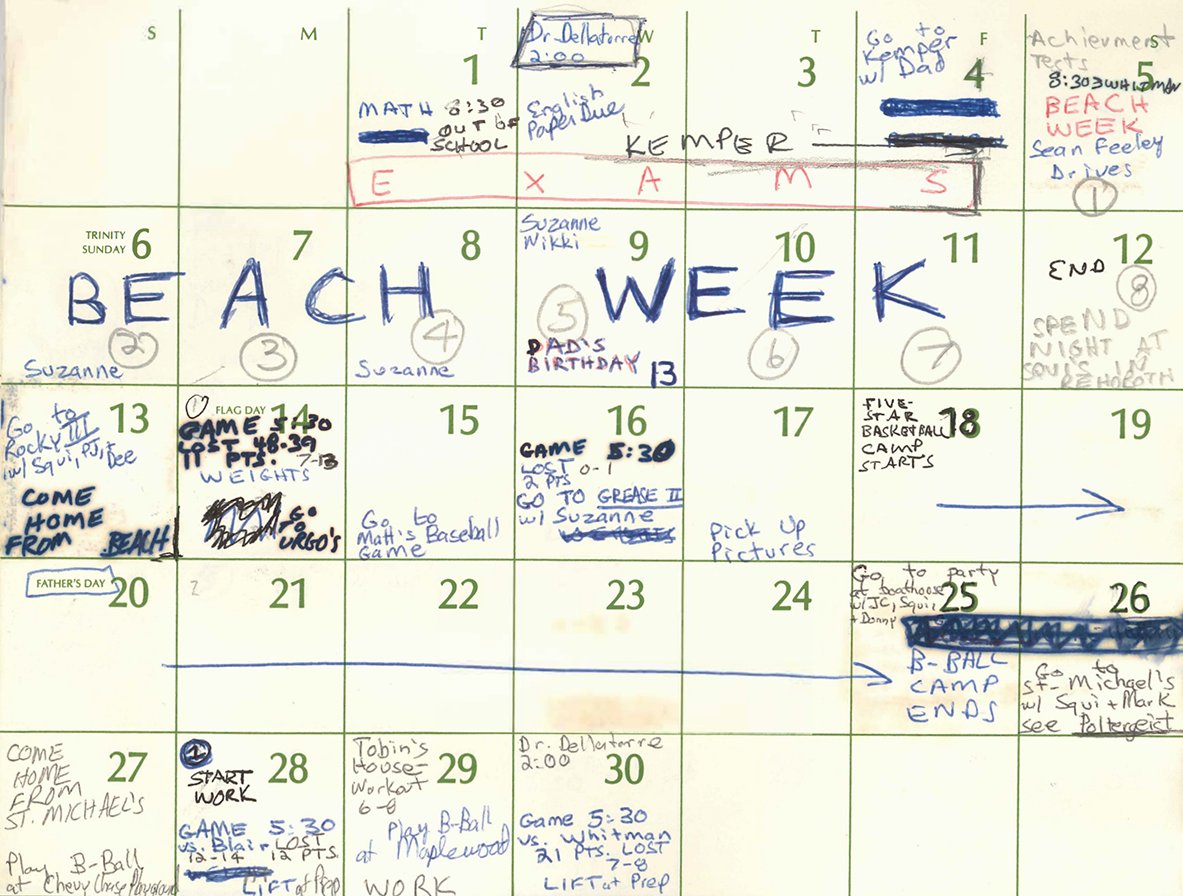 S M T W T F S
1
MATH 8:30
OUT OF
SCHOOL
Dr. Dellatorre
2:00
2
English
Paper Due
3
KEMPER
Go to
Kemper
w/ Dad
4
Achievment
Tests
5
8:30 WHITMAN
BEACH
WEEK
Sean Feeley
Drives
1
E X A M S
TRINITY
SUNDAY 6
2
Suzanne
7
3
8
4
Suzanne
Suzanne
Nikki
9
5
DAD'S
BIRTHDAY
13
10
6
11
7
12
END
8
SPEND
NIGHT AT
SQUIS IN
REHOBOTH
BEACH WEEK
13
Go to
Rocky III
w/ Squi, PJ, +
Dee
COME
HOME
FROM BEACH
FLAG DAY 14
GAME 5:30
LOST 48-39
11 PTS. 7-13
WEIGHTS
GO
TO
URGO'S
15
Go to
Matt's Baseball
Game
16
GAME 5:30
LOST 0-1
2 PTS
GO TO GREASE II
w/ Suzanne
17
Pick Up
Pictures
FIVE-
STAR 18
BASKETBALL
CAMP
STARTS
19
FATHER'S DAY 20
21
22
23
24
Go to party
at boathouse
w/ JC, Squi,
+ Donny
25
B-BALL
CAMP
ENDS
26
Go to
St. Michael's
w/ Squi + Mark
see Poltergeist
COME
HOME 27
FROM
ST. MICHAEL'S
Play B-Ball
at Chevy Chase Playground
1
START 28
WORK
GAME 5:30
vs. Blair LOST
12-14 12 PTS.
LIFT at Prep
Tobin's
House- 29
Workout
6-8
Play B-Ball
at Maplewood
WORK
Dr. Dellatorre
2:00 30
Game 5:30
vs. Whitman
21 PTS. LOST
7-8
LIFT at Prep